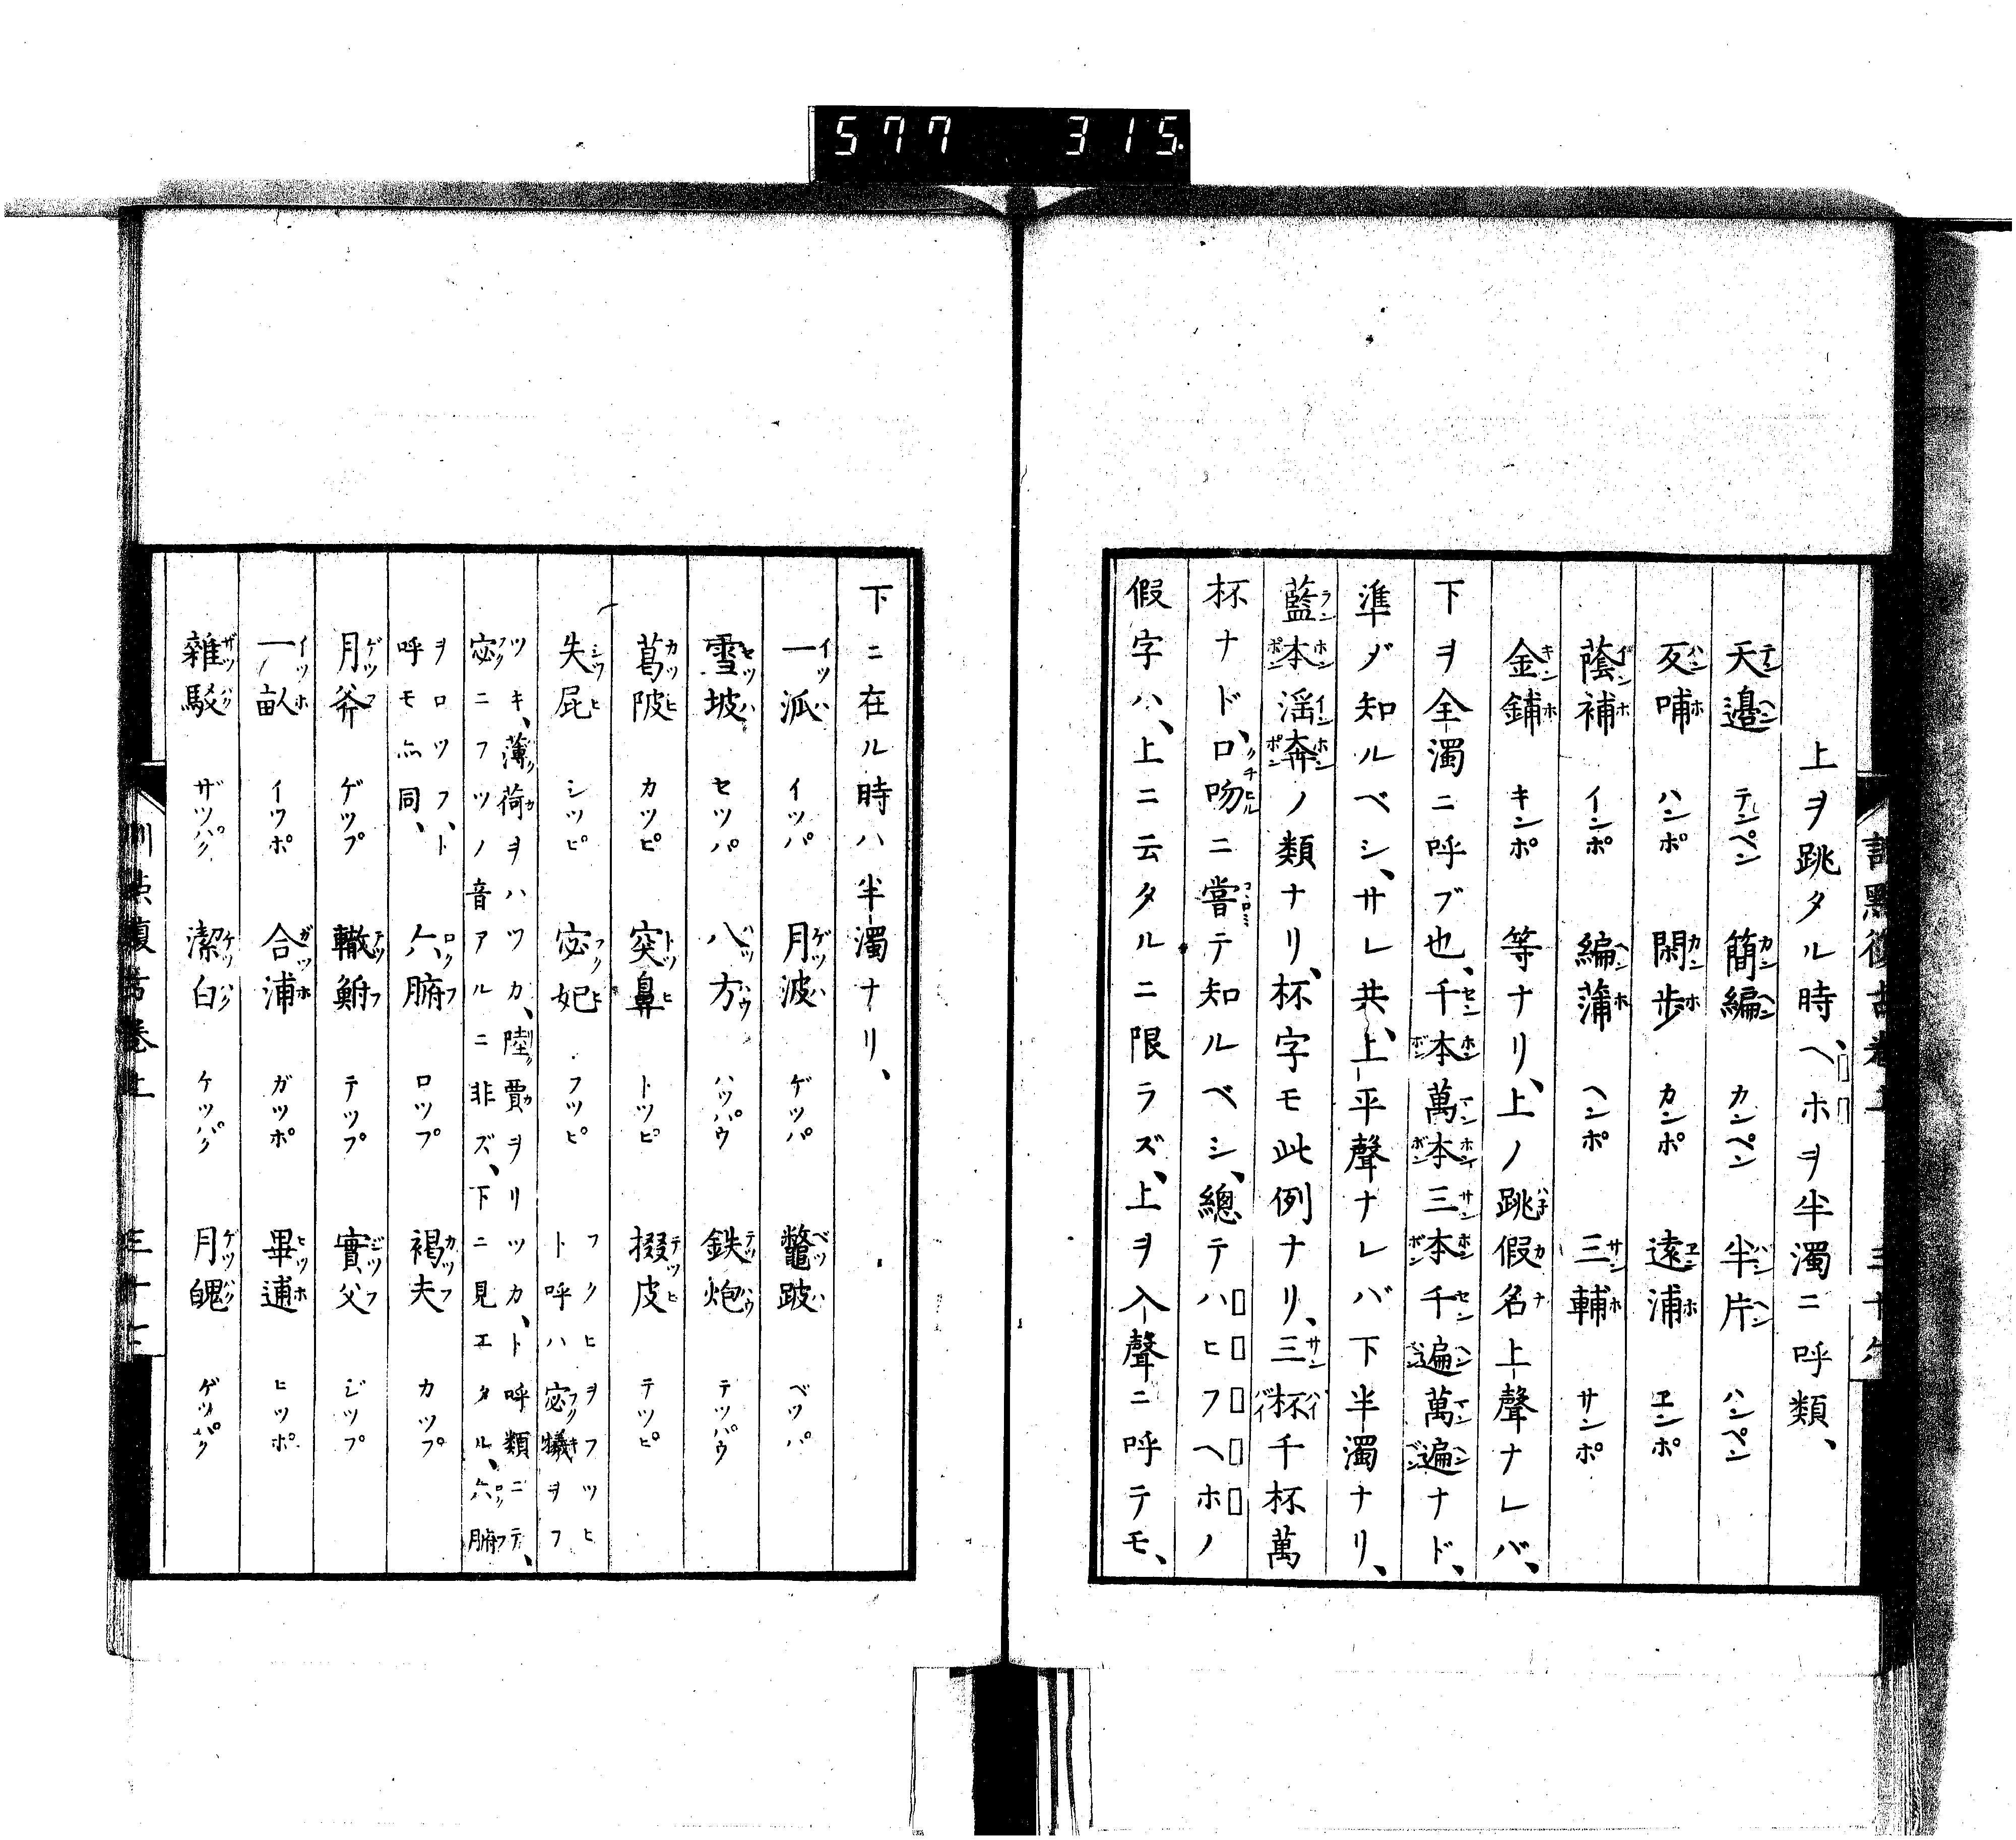 577 315.
上ヲ跳タル時、ヘホヲ半濁ニ呼類、
天邉テンヘン テンペン 簡編カンヘン カンペン 半片ハンヘン ハンペン
反哺ハンホ ハンポ 閑歩カンホ カンポ 遠浦ヱンホ ヱンポ
蔭補インホ インポ 編蒲ヘンホ ヘンポ 三輔サンホ サンポ
金鋪キンホ キンポ 等ナリ、上ノ跳ハネ假カ名ナ上聲ナレバ、
下ヲ全濁ニ呼ブ也、千セン本ホンボン萬マン本ホンボン三サン本ホンボン千セン遍ヘンベン萬マン遍ヘンベンナド、
準ジ知ルベシ、サレ共、上平聲ナレバ下半濁ナリ、
藍ラン本ホンポン滛イン奔ホンポンノ類ナリ、杯字モ此例ナリ、三サン杯ハイバイ千杯萬
杯ナド、口クチ吻ヒルニ嘗コヽロミテ知ルベシ、總テハヒフヘホノ
假字ハ、上ニ云タルニ限ラズ、上ヲ入聲ニ呼テモ、
下ニ在ル時ハ半濁ナリ、
一泒イツハ イツパ 月波ゲツハ ゲツパ 鼈跛ベツハ ベツパ
雪坡セツハ セツパ 八方ハツハウ ハツパウ 鉄炮テツハウ テツパウ
葛陂カツヒ カツピ 突鼻トツヒ トツピ 掇皮テツヒ テツピ
失屁シツヒ シツピ 宓妃フクヒ フツピ フクヒヲフツヒ
ト呼ハ宓フク犠キヲフ
ツキ、薄荷カヲハツカ、陸リク賈カヲリツカ、ト呼類ニテ、
宓フクニフツノ音アルニ非ズ、下ニ見エタル、六ロク腑フ
ヲロツフ、ト
呼モ亦同、 六腑ロクフ ロツプ 褐夫カツフ カツプ
月斧ゲツフ ゲツプ 轍鮒テツフ テツプ 實父ジツフ ジツプ
一畝イツホ イツポ 合浦ガツホ ガツポ 畢逋ヒツホ ヒツポ
雜駁ザツハク ザツパク 潔白ケツハク ケツパク 月魄ゲツハク ゲツパク